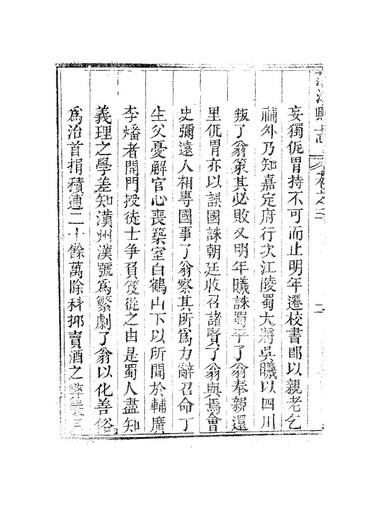 妄獨侂胄持不可而止明年遷校書郎以親老乞
補外乃知嘉定府行次江陵蜀大將吳曦以四川
叛了翁策其必敗又明年曦誅蜀平了翁奉親還
里侂胄亦以誤國誅朝廷收召諸賢了翁與焉會
史彌遠入相專國事了翁察其所爲力辭召命丁
生父憂解官心喪築室白鶴山下以所聞於輔廣
李燔者開門授徒士爭負笈從之由是蜀人盡知
義理之學差知漢州漢號爲繁劇了翁以化善俗
爲治首捐積逋二十餘萬除科抑賣酒之弊嚴